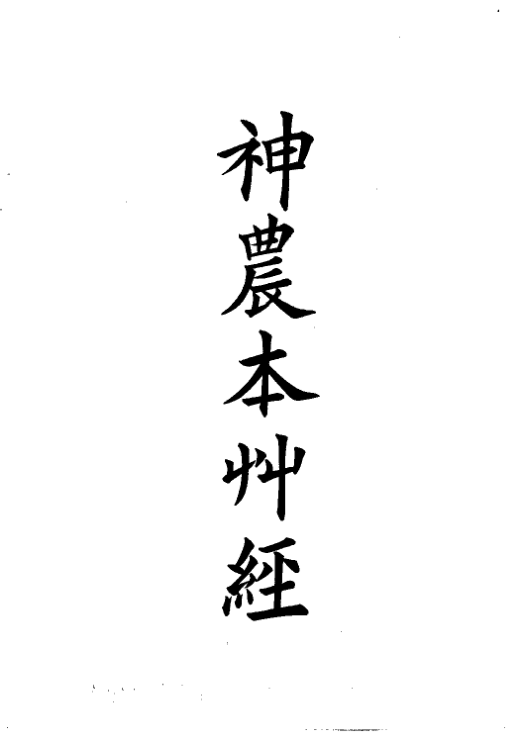 神農本艸經